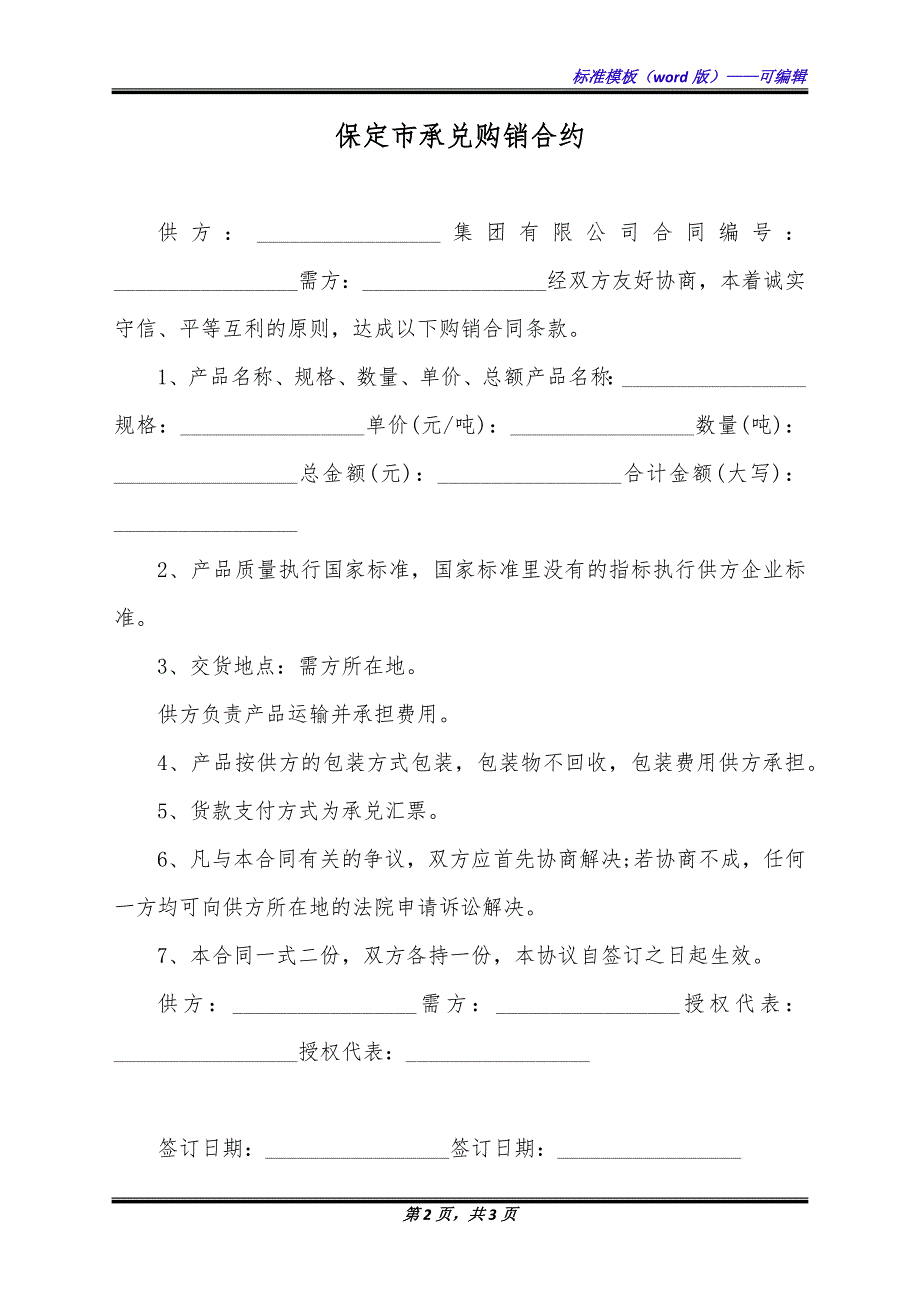 标准模板（word 版）——可编辑
保定市承兑购销合约
供方：_________________集团有限公司合同编号：
_________________需方：_________________经双方友好协商，本着诚实
守信、平等互利的原则，达成以下购销合同条款。
1、产品名称、规格、数量、单价、总额产品名称：_________________
规格：_________________单价(元/吨)：_________________数量(吨)：
_________________总金额(元)：_________________合计金额(大写)：
_________________
2、产品质量执行国家标准，国家标准里没有的指标执行供方企业标
准。
3、交货地点：需方所在地。
供方负责产品运输并承担费用。
4、产品按供方的包装方式包装，包装物不回收，包装费用供方承担。
5、货款支付方式为承兑汇票。
6、凡与本合同有关的争议，双方应首先协商解决;若协商不成，任何
一方均可向供方所在地的法院申请诉讼解决。
7、本合同一式二份，双方各持一份，本协议自签订之日起生效。
供方：_________________需方：_________________授权代表：
_________________授权代表：_________________
签订日期：_________________签订日期：_________________
第 2 页，共 3 页